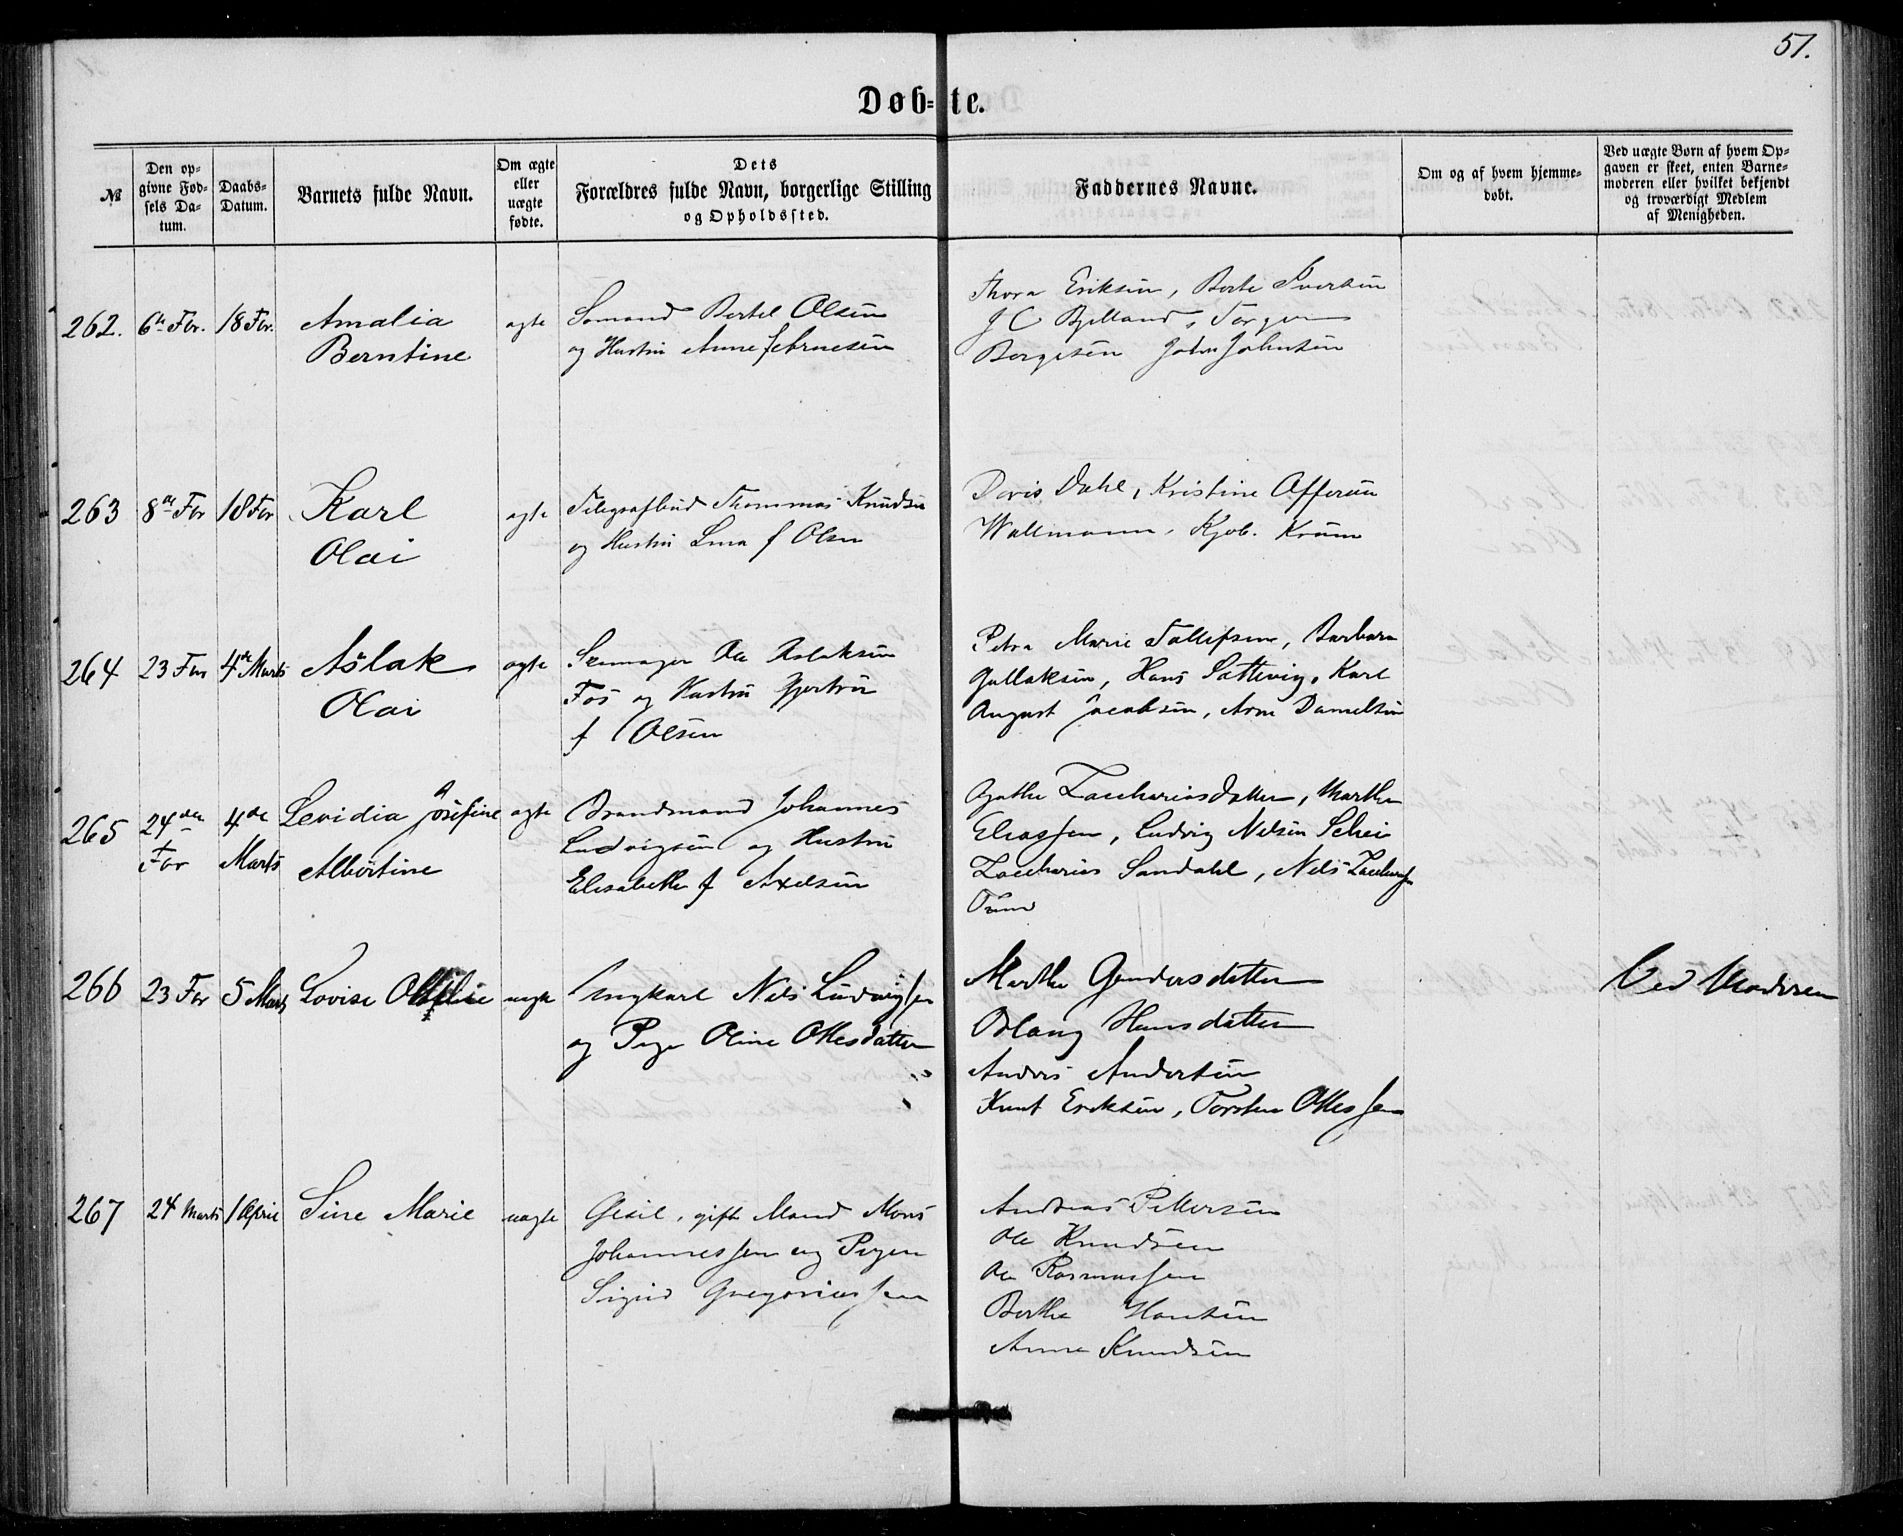 51.
Døb-te.
№
Den op-
givne Fød-
sels Da-
tum.
Daabs-
Datum.
Barnets fulde Navn.
Om ægte
eller
uægte
fødte.
Dets
Forældres fulde Navn, borgerlige Stilling
og Opholdssted.
Faddernes Navne.
Om og af hvem hjemme-
døbt.
Ved uægte Børn af hvem Op-
gaven er skeet, enten Barne-
moderen eller hvilket bekjendt
og troværdigt Medlem
af Menigheden.
262. 6te Fbr. 18 Fbr. Amalia
Berntine
ægte
Sømand Bertel Olsen
og Hustru Anne f Arnesen
Thora Eriksen, Berte Ivertsen
J C Bjelland, Torger
Borgesen John Johnsen
263 8de Fbr 18 Fbr Karl
Olai
ægte
Telegrafbud Thommas Knudsen
og Hustru Lina f Olsen
Doris Dahl, Kristine
Wallmann, Kjøb.
264 23 Fbr 4de Marts Aslak
Olai
ægte
Ole Aslaksen
Fos og Hustru Gjertrud
f Olsen
Petra Marie Tollefsen, Barbara
Gullaksen, Hans Sættevig, Karl
August Jacobsen, Arne Danielsen
265 24de
Fbr
4de
Marts
Levidia Josefine
Albertine
ægte
Brandmand Johannes
Ludvigsen og Hustru
Elisabeth f Axelsen
Agathe Zacchariasdatter, Marthe
Eliassen, Ludvig Nilsen Schei
Zaccharias Sandahl, Nils
266 23 Fbr 5 Marts Lovise
uægte
Ungkarl Nils Ludvigsen
og Pige Oline Ottesdatter
Marthe Gundersdatter
Aslaug Hansdatter
Anders Andersen
Knut Eriksen, Torsten Ottessen
Ved Moderen
267 24 Marts 1 April Sine Marie
uægte
gift Mand Mons
Johannessen og Pigen
Sigrid Gregoriussen
Andreas Pettersen
Ole Knudsen
Ole Rasmussen
Berthe Hansen
Anne Knudsen